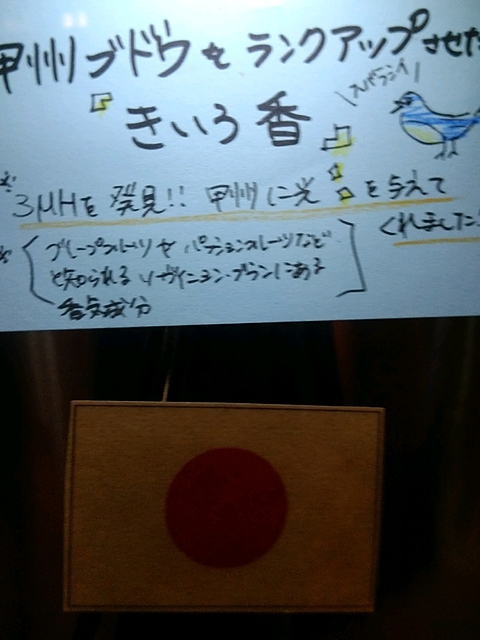 甲州ブドウをランクアップさせた
\スバラシイ/
きいろ香
※3MHを発見!! 甲州に光を与えて
くれました!
※(グレープフルーツやパッションフルーツなど
で知られるソーヴィニヨン・ブランにある
香気成分)